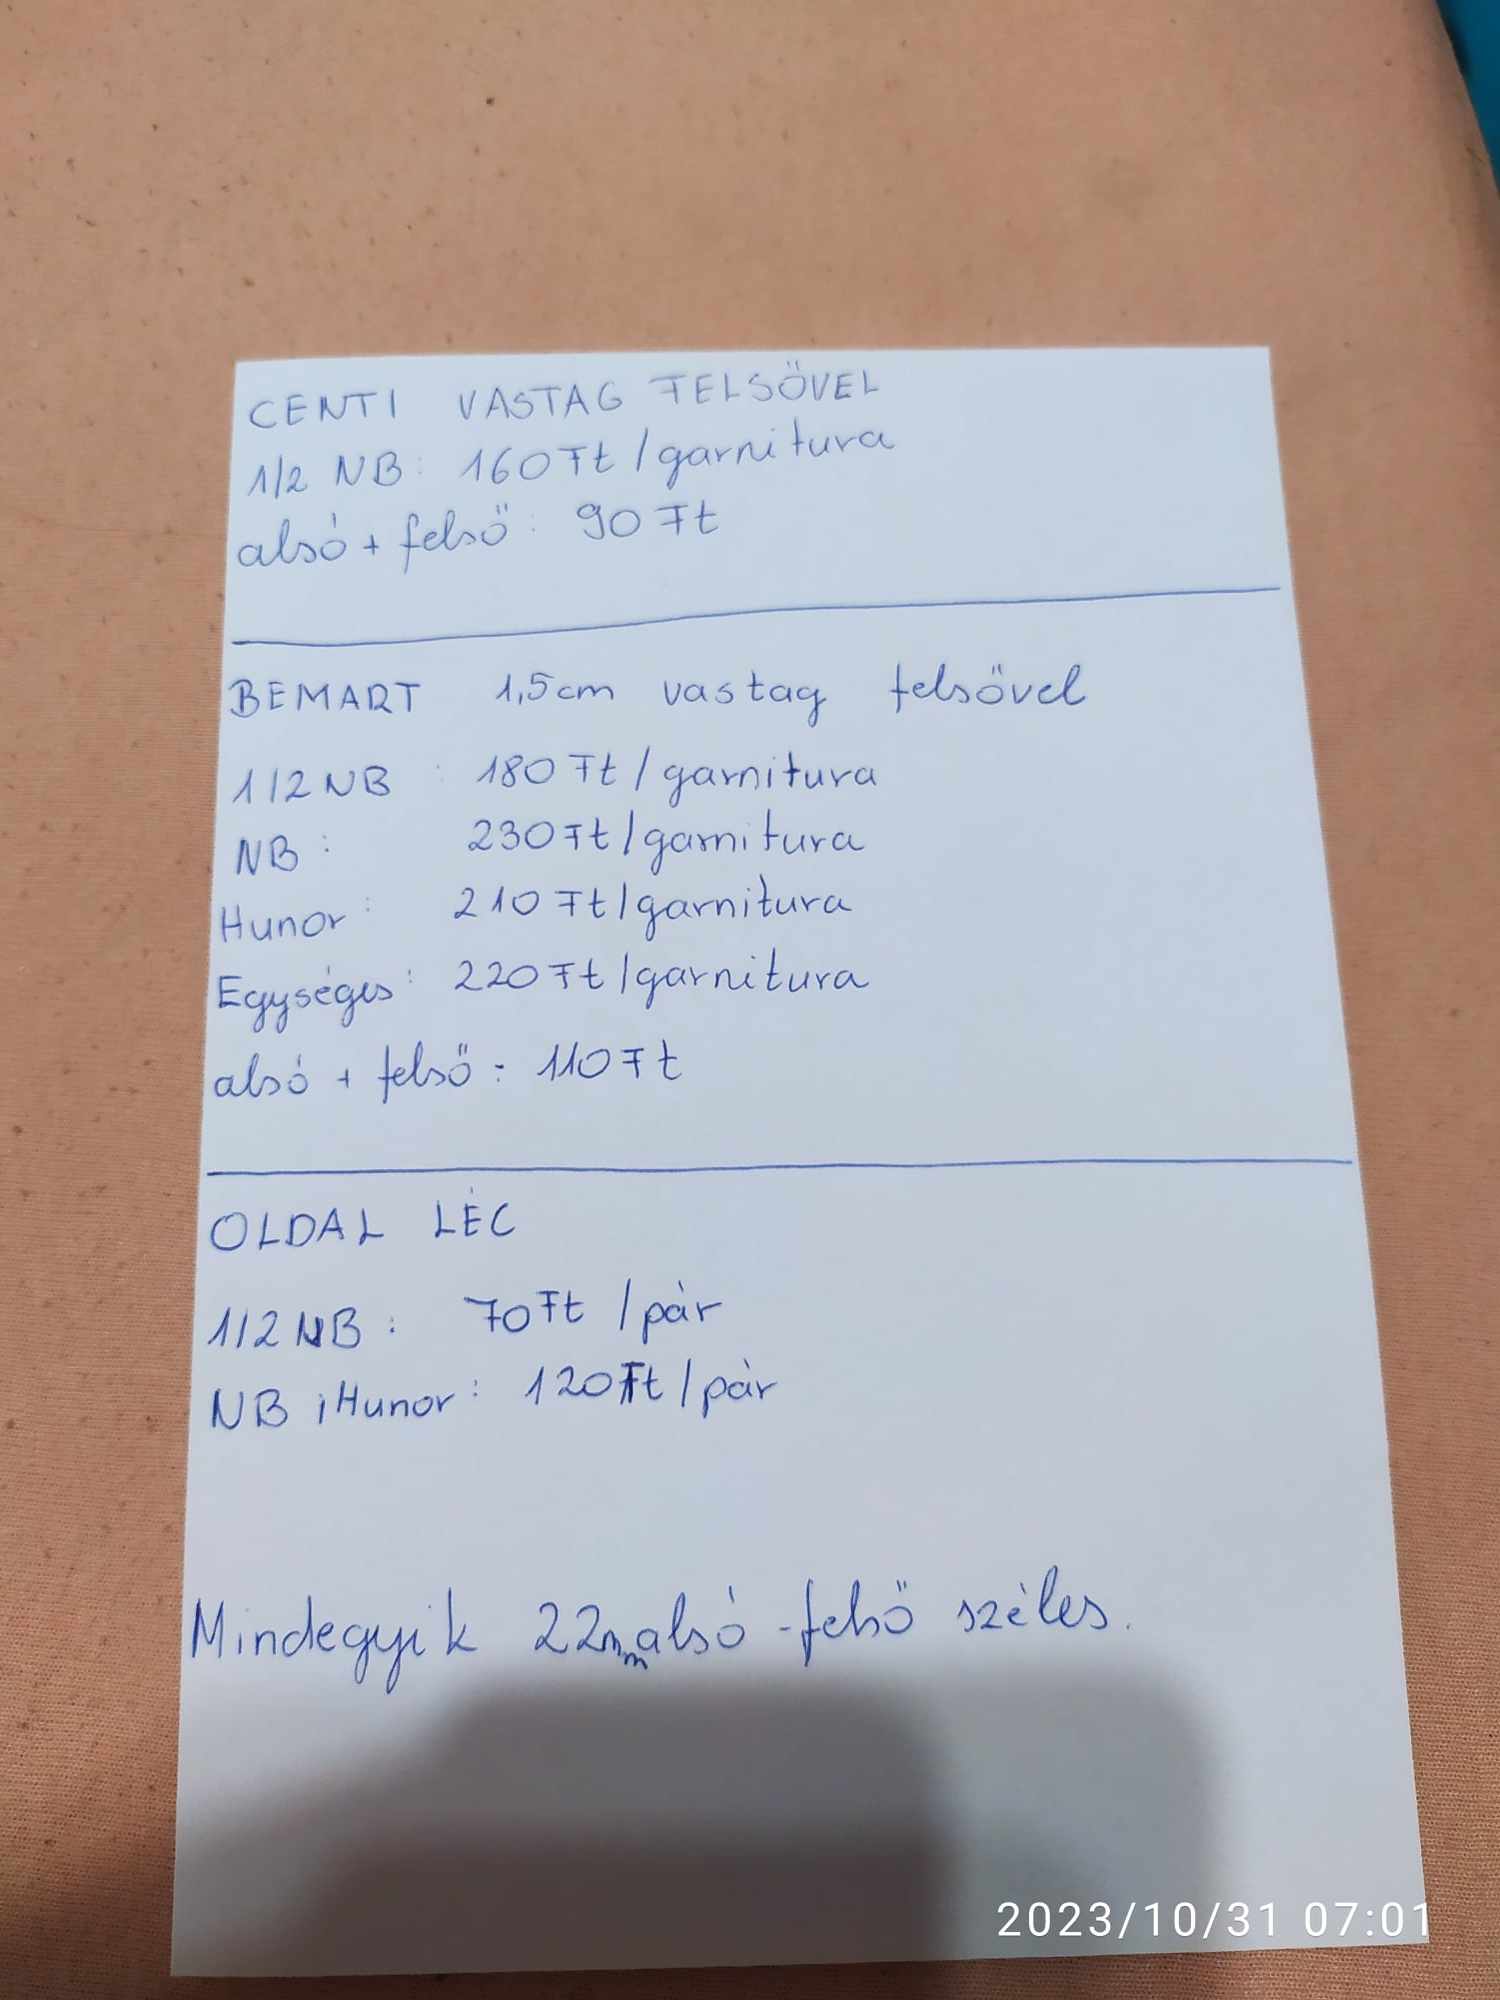 CENTI VASTAG FELSŐVEL
1/2 NB: 160 Ft/garnitura
alsó + felső: 90 Ft
BEMART 1,5cm vastag felsővel
1/2 NB : 180 Ft/garnitura
NB: 230 Ft/garnitura
Hunor: 210 Ft/garnitura
Egységes: 220 Ft/garnitura
alsó + felső: 110 Ft
OLDAL LÉC
1/2 NB: 70 Ft /pár
NB ; Hunor: 120 Ft/pár
Mindegyik 22mm alsó-felső széles.
2023/10/31 07:01